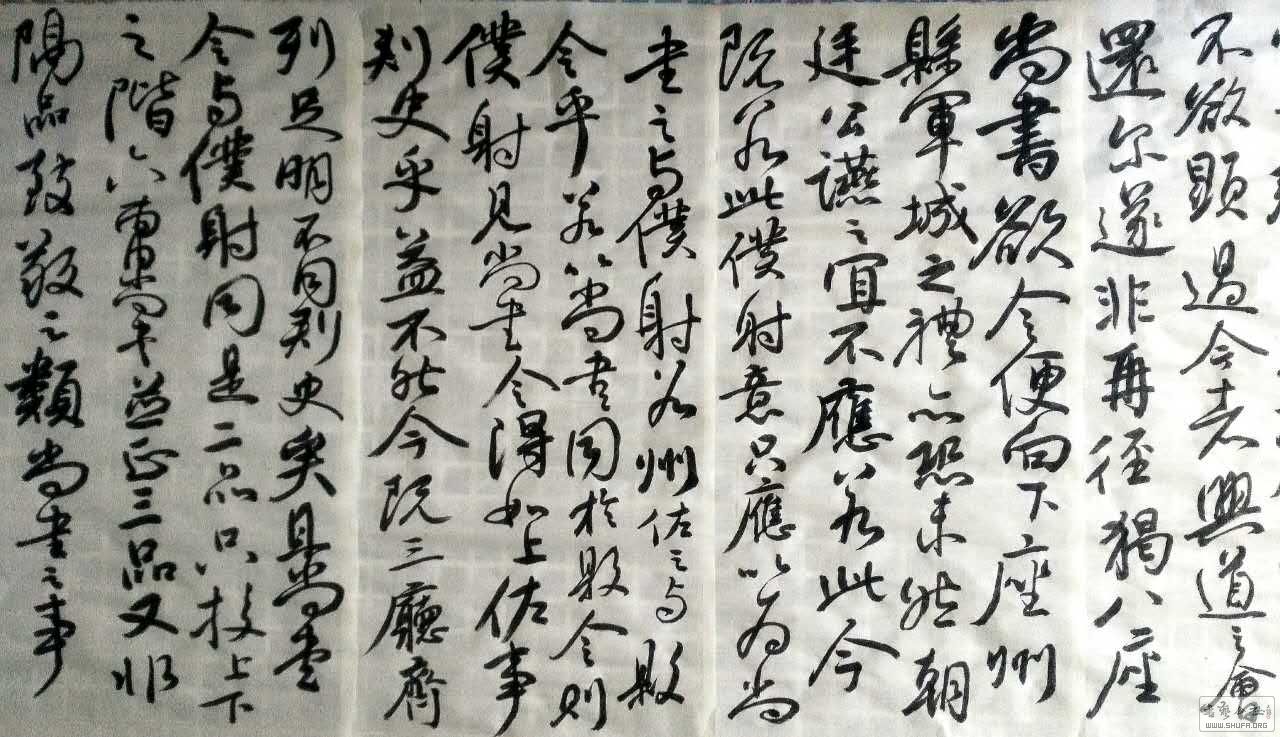 不欲顕過今者興道之會
還尔遂非再徑猲八座
尚書欲令便向下座州
縣軍城之禮亦恐未然朝
廷公讌之宜不應若此今
既若此僕射意只應以為尚
書之与僕射若州佐之与縣
令乎若以尚書同於縣令則
僕射見尚書令得如上佐事
刺史乎益不然今既三廳齊
列足明不同刺史矣且尚書
令与僕射同是二品只校上下
之階六曹尚書並正三品又非
隔品致敬之類尚書之事
WWW.SHUFA.ORG